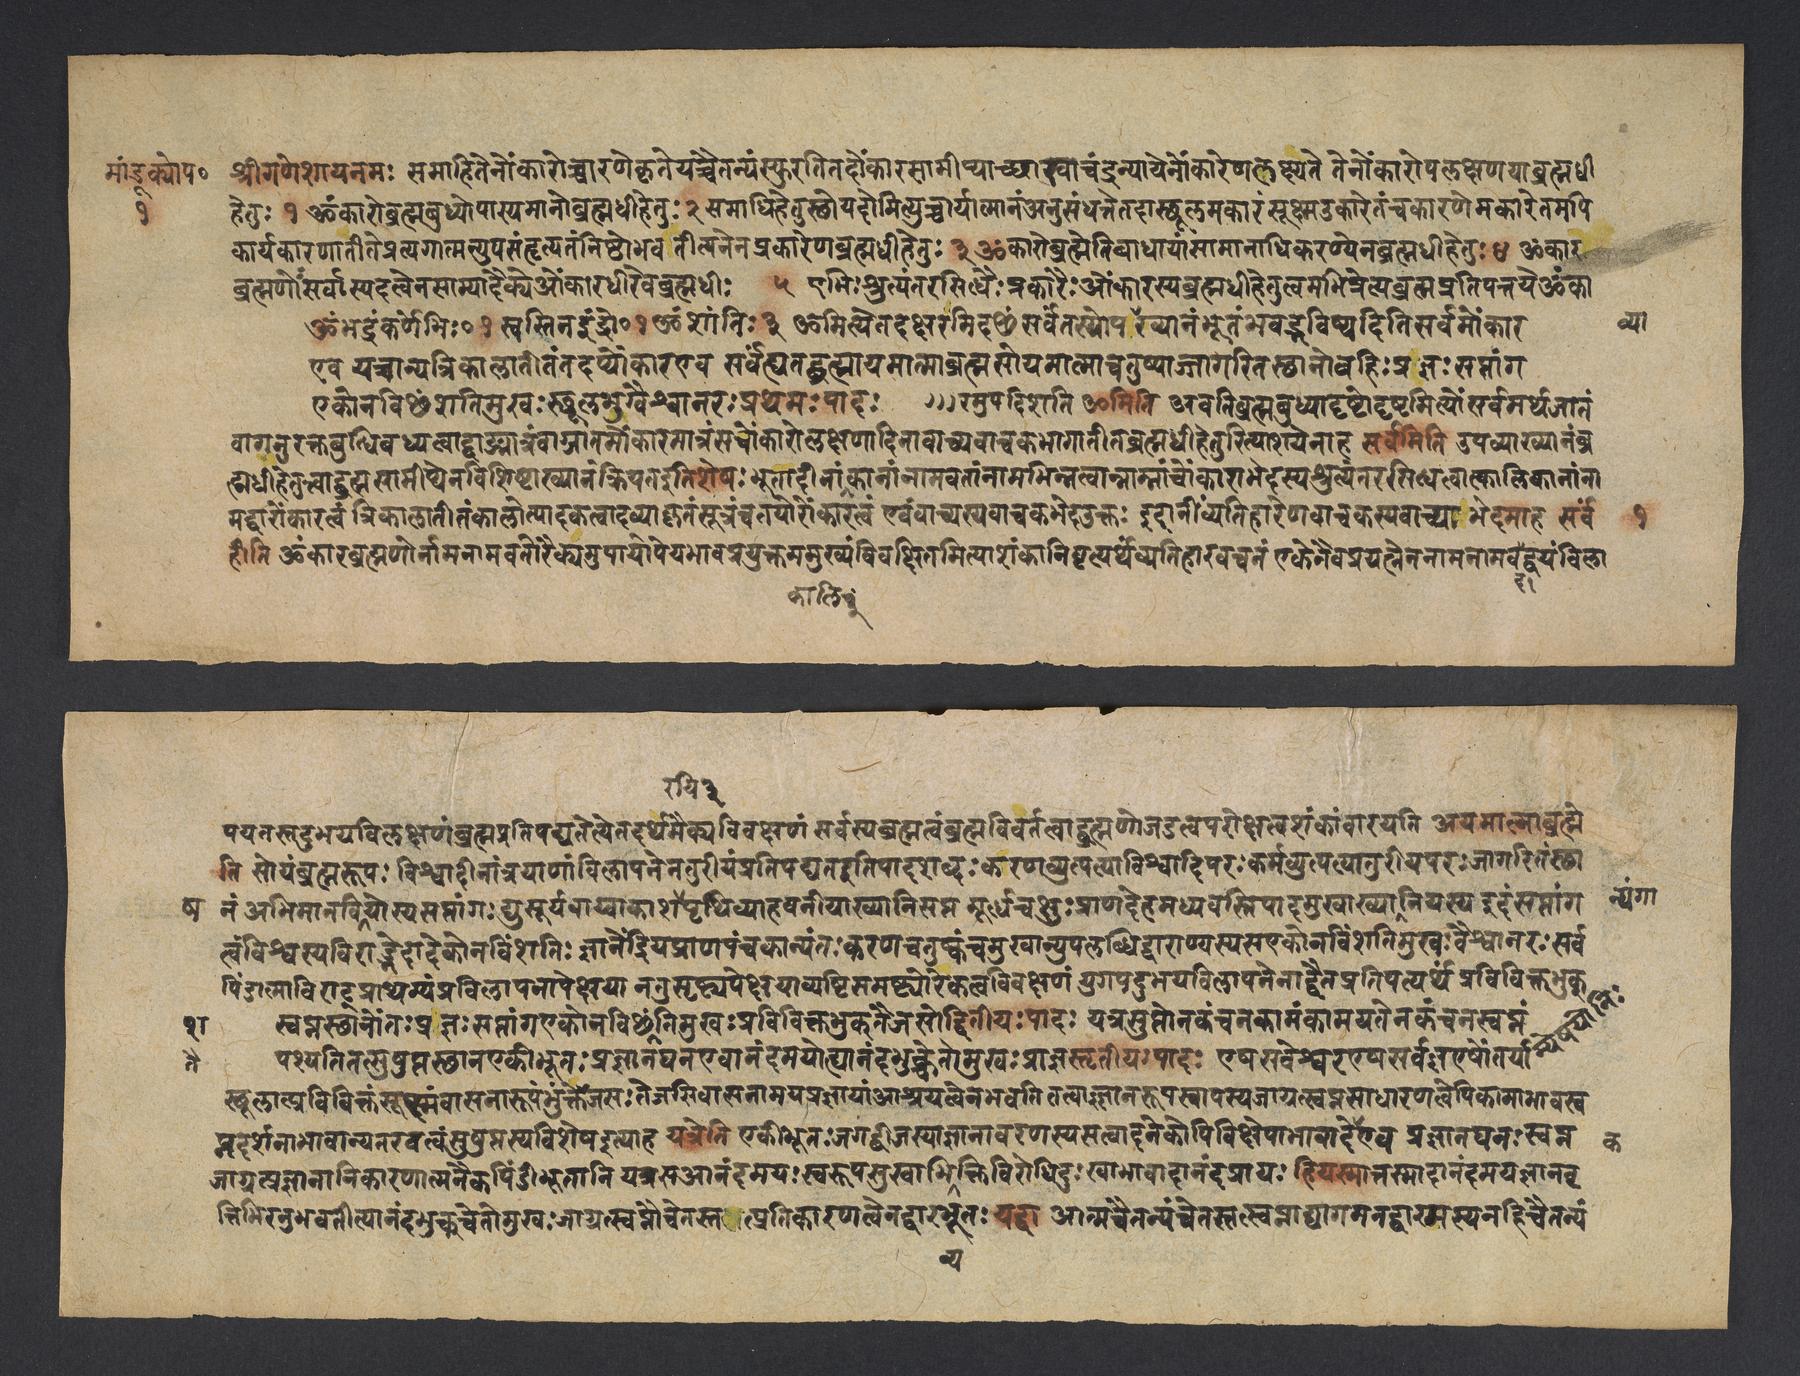 मांडूक्योप०
१
श्रीगणेशायनमः समाहितेनोंकारोच्चारणेकृतेयच्चैतन्यंस्फुरतितदोंकारसामीप्याच्छाखाचंद्रन्यायेनोंकारेणलक्ष्यते तेनोंकारोपलक्षणयाब्रह्मधी
हेतुः १ ॐकारोब्रह्मबुध्योपास्यमानोब्रह्मधीहेतुः २ समाधिहेतुस्छोयदोमित्युच्चार्यात्मानंअनुसंधत्तेतदास्छूलमकारंसूक्ष्मउकारेतंचकारणेमकारेतमपि
कार्यकारणातीतेप्रत्यगात्मन्युपसंहृत्यतंनिष्ठोभवतीत्यनेनप्रकारेणब्रह्मधीहेतुः ३ ॐकारोब्रह्मेतिबाधायांसामानाधिकरण्येनब्रह्मधीहेतुः ४ ॐकार
ब्रह्मणोःसर्वास्पदत्वेनसाम्यादैक्येओंकारधीरेवब्रह्मधीः ५ एभिःश्रुत्यंतरसिध्धैःप्रकारैःओंकारस्यब्रह्मधीहेतुत्वमभिप्रेत्यब्रह्मप्रतिपत्तयेॐका
ॐभद्रंकर्णेभिः० १ स्वस्तिनइंद्रो० १ ॐ शांतिः ३ ॐमित्येतदक्षरमिदꣳसर्वंतस्योपव्याख्यानंभूतंभवद्भविष्यदितिसर्वमोंकार
एव यच्चान्यत्रिकालातीतंतदप्योंकारएव सर्वंह्येतद्ब्रह्मायमात्माब्रह्मसोयमात्माचतुष्पाज्जागरितस्छानोबहिःप्रज्ञःसप्तांग
एकोनविꣳशतिमुखःस्छूलभुग्वैश्वानरःप्रथमःपादः रमुपदिशति ॐमिति अवतिब्रह्मबुध्यादृष्टोदृष्टमित्योंसर्वमर्थजातं
वागनुरक्तबुध्धिबध्यत्वाद्वाङ्मात्रंवाग्जातमोंकारमात्रंसचोंकारोलक्षणादिनावाच्यवाचकभागातीतब्रह्मधीहेतुरित्याशयेनाह सर्वमिति उपव्याख्यानंब्र
ह्मधीहेतुत्वाद्ब्रह्मसामीप्येनविशिष्टाख्यानंक्रियतइतिशेषः भूतादीनांकानांनामवतांनामभिन्नत्वान्नाम्नांचोंकाराभेदस्यश्रुत्यंतरसिध्धत्वात्कालिकानांना
मद्वारोंकारत्वं त्रिकालातीतंकालोत्पादकत्वादव्याकृतंसूत्रंचतयोरोंकारत्वं एवंवाच्यस्यवाचकभेदउक्तः इदानींव्यतिहारेणवाचकस्यवाच्याभेदमाह सर्वं
हीति ॐकारब्रह्मणोर्नामनामवतोरैक्यमुपायोपेयभावप्रयुक्तममुख्यंविवक्षितमित्याशंकानिवृत्यर्थंव्यतिहारवचनं एकेनैवप्रयत्नेननामनामवद्द्वयंविला
व्या
१
कालि
रयि
पयतस्तदुभयविलक्षणंब्रह्मप्रतिपद्यतेत्येतदर्थमैक्यविवक्षणं सर्वस्यब्रह्मत्वंब्रह्मविवर्तत्वाद्ब्रह्मणोजडत्वपरोक्षत्वशंकांवारयति अयमात्माब्रह्मे
ति सोयंब्रह्मरूपः विश्वादीनांत्रयाणांविलापनेनतुरीयंप्रतिपद्यतइतिपादशब्दः करणव्युत्पत्याविश्वादिपरः कर्मव्युत्पत्यातुरीयपरः जागरितंस्छा
नं अभिमानविषयोस्यसप्तांगः द्युसूर्यवाय्वाकाशपृथिव्याहवनीयाख्यानिसप्त मूर्धचक्षुःप्राणदेहमध्यवस्तिपादमुखाख्यानियस्य इदंसप्तांग
त्वंविश्वस्यविराडभेदादेकोनविंशतिः ज्ञानेंद्रियप्राणपंचकान्यंतःकरणचतुष्कंचमुखान्युपलब्धिद्वाराण्यस्यसएकोनविंशतिमुखः वैश्वानरः सर्व
पिंडात्माविराट्प्राथम्यंप्रविलापनापेक्षया ननुसृष्ट्यपेक्षयाव्यष्टिसमष्ट्योरेकत्वविवक्षणं युगपदुभयविलापनेनाद्वैतप्रतिपत्यर्थं प्रविविक्तभुक्
स्वप्नस्छानोंतःप्रज्ञः सप्तांगएकोनविꣳतिमुखः प्रविविक्तभुक्तैजसोद्वितीयःपादः यत्रसुप्तोनकंचनकामंकामयतेनकंचनस्वप्नं
पश्यतितत्सुषुप्तस्छानएकीभूतः प्रज्ञानघनएवानंदमयोह्यानंदभुक्चेतोमुखः प्राज्ञस्तृतीयःपादः एषसर्वेश्वरएषसर्वज्ञएषोंतर्या
स्छूलात्प्रविविक्तंसूक्ष्मंवासनारूपंभुंक्तेजसः तैजसिवासनामयप्रज्ञायांआश्रयत्वेनभवति तत्वाज्ञानरूपस्वापस्यजाग्रत्स्वप्नसाधारणत्वेपिकामाभावस्व
प्नदर्शनाभावान्यतरवत्वंसुषुप्तस्यविशेषइत्याह यत्रेति एकीभूतः जगद्बीजस्याज्ञानावरणस्यसत्वादनेकोपिविक्षेपाभावादेकएव प्रज्ञानघनः स्वप्न
जाग्रत्प्रज्ञानानिकारणात्मनैकपिंडीभूतानि यत्रसआनंदमयः स्वरूपसुखाभिक्तिविरोधिदुःखाभावादानंदप्रायः हियस्मात्तस्मादानंदमयज्ञानवृ
त्तिभिरनुभवतीत्यानंदभुक्चेतोमुखः जाग्रत्स्वप्नौचेतस्तत्प्रतिकारणत्वेनद्वारभूतः यद्वा आत्मचैतन्यंचेतस्तत्स्वप्नाद्यागमनद्वारमस्यनहिचैतन्यं
ष
न्यंगा
श
तै
क
व्य